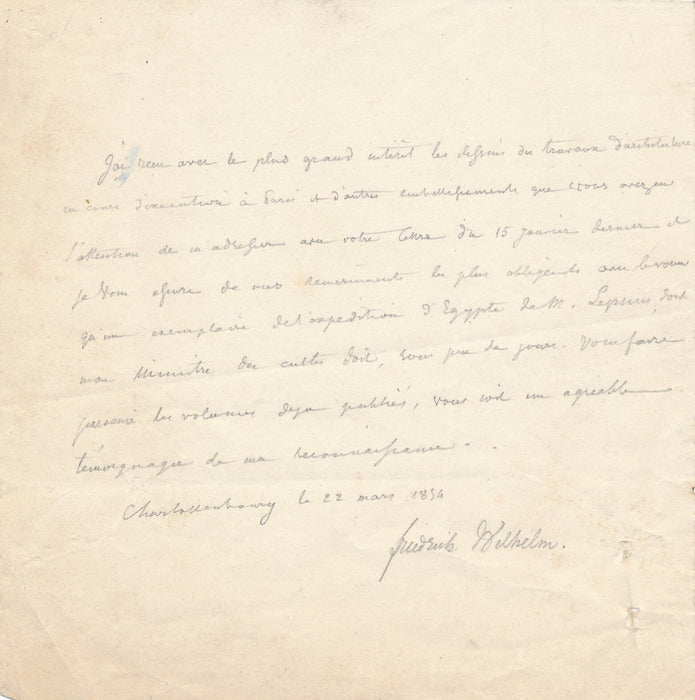 J'ai reçu avec le plus grand intérêt les dessins du travaux d'architecture
en cours d'exécution à Paris et d'autres embellissements que vous avez eu
l'attention de m'adresser avec votre lettre du 15 janvier dernier et
je vous assure de mes remerciments les plus obligeants avec le voeu
qu'un exemplaire de l'expédition d'Egypte de M. Lepsius, dont
mon Ministre des cultes doit, sous peu de jours. Vous faire
parvenir les volumes deja publiés, vous soit un agreable
témoignage de ma reconnaissance.
Charlottenbourg le 22 mars 1854
friedrich Wilhelm.